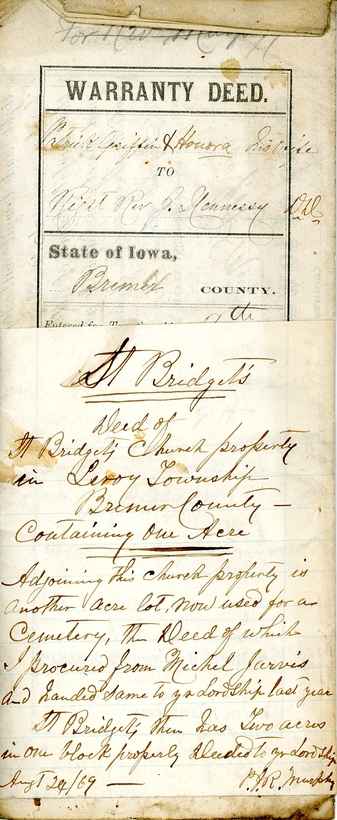 WARRANTY DEED.
Patrick Griffin & Honora his wife
TO
Right Rev J. Hennessy
State of Iowa,
Bremer COUNTY.
St Bridget's
Deed of
St Bridget's Church property
in Leroy Township
Bremer County —
Containing One Acre
Adjoining this church property is
another acre lot, now used for a
Cemetery, the Deed of which
I procured from Michel Jarvis
and handed same to yr Lordship last year
St Bridget's then has two acres
in one block properly deeded to yr Lordship
Augt 24/69 — P. J. R. Murphy